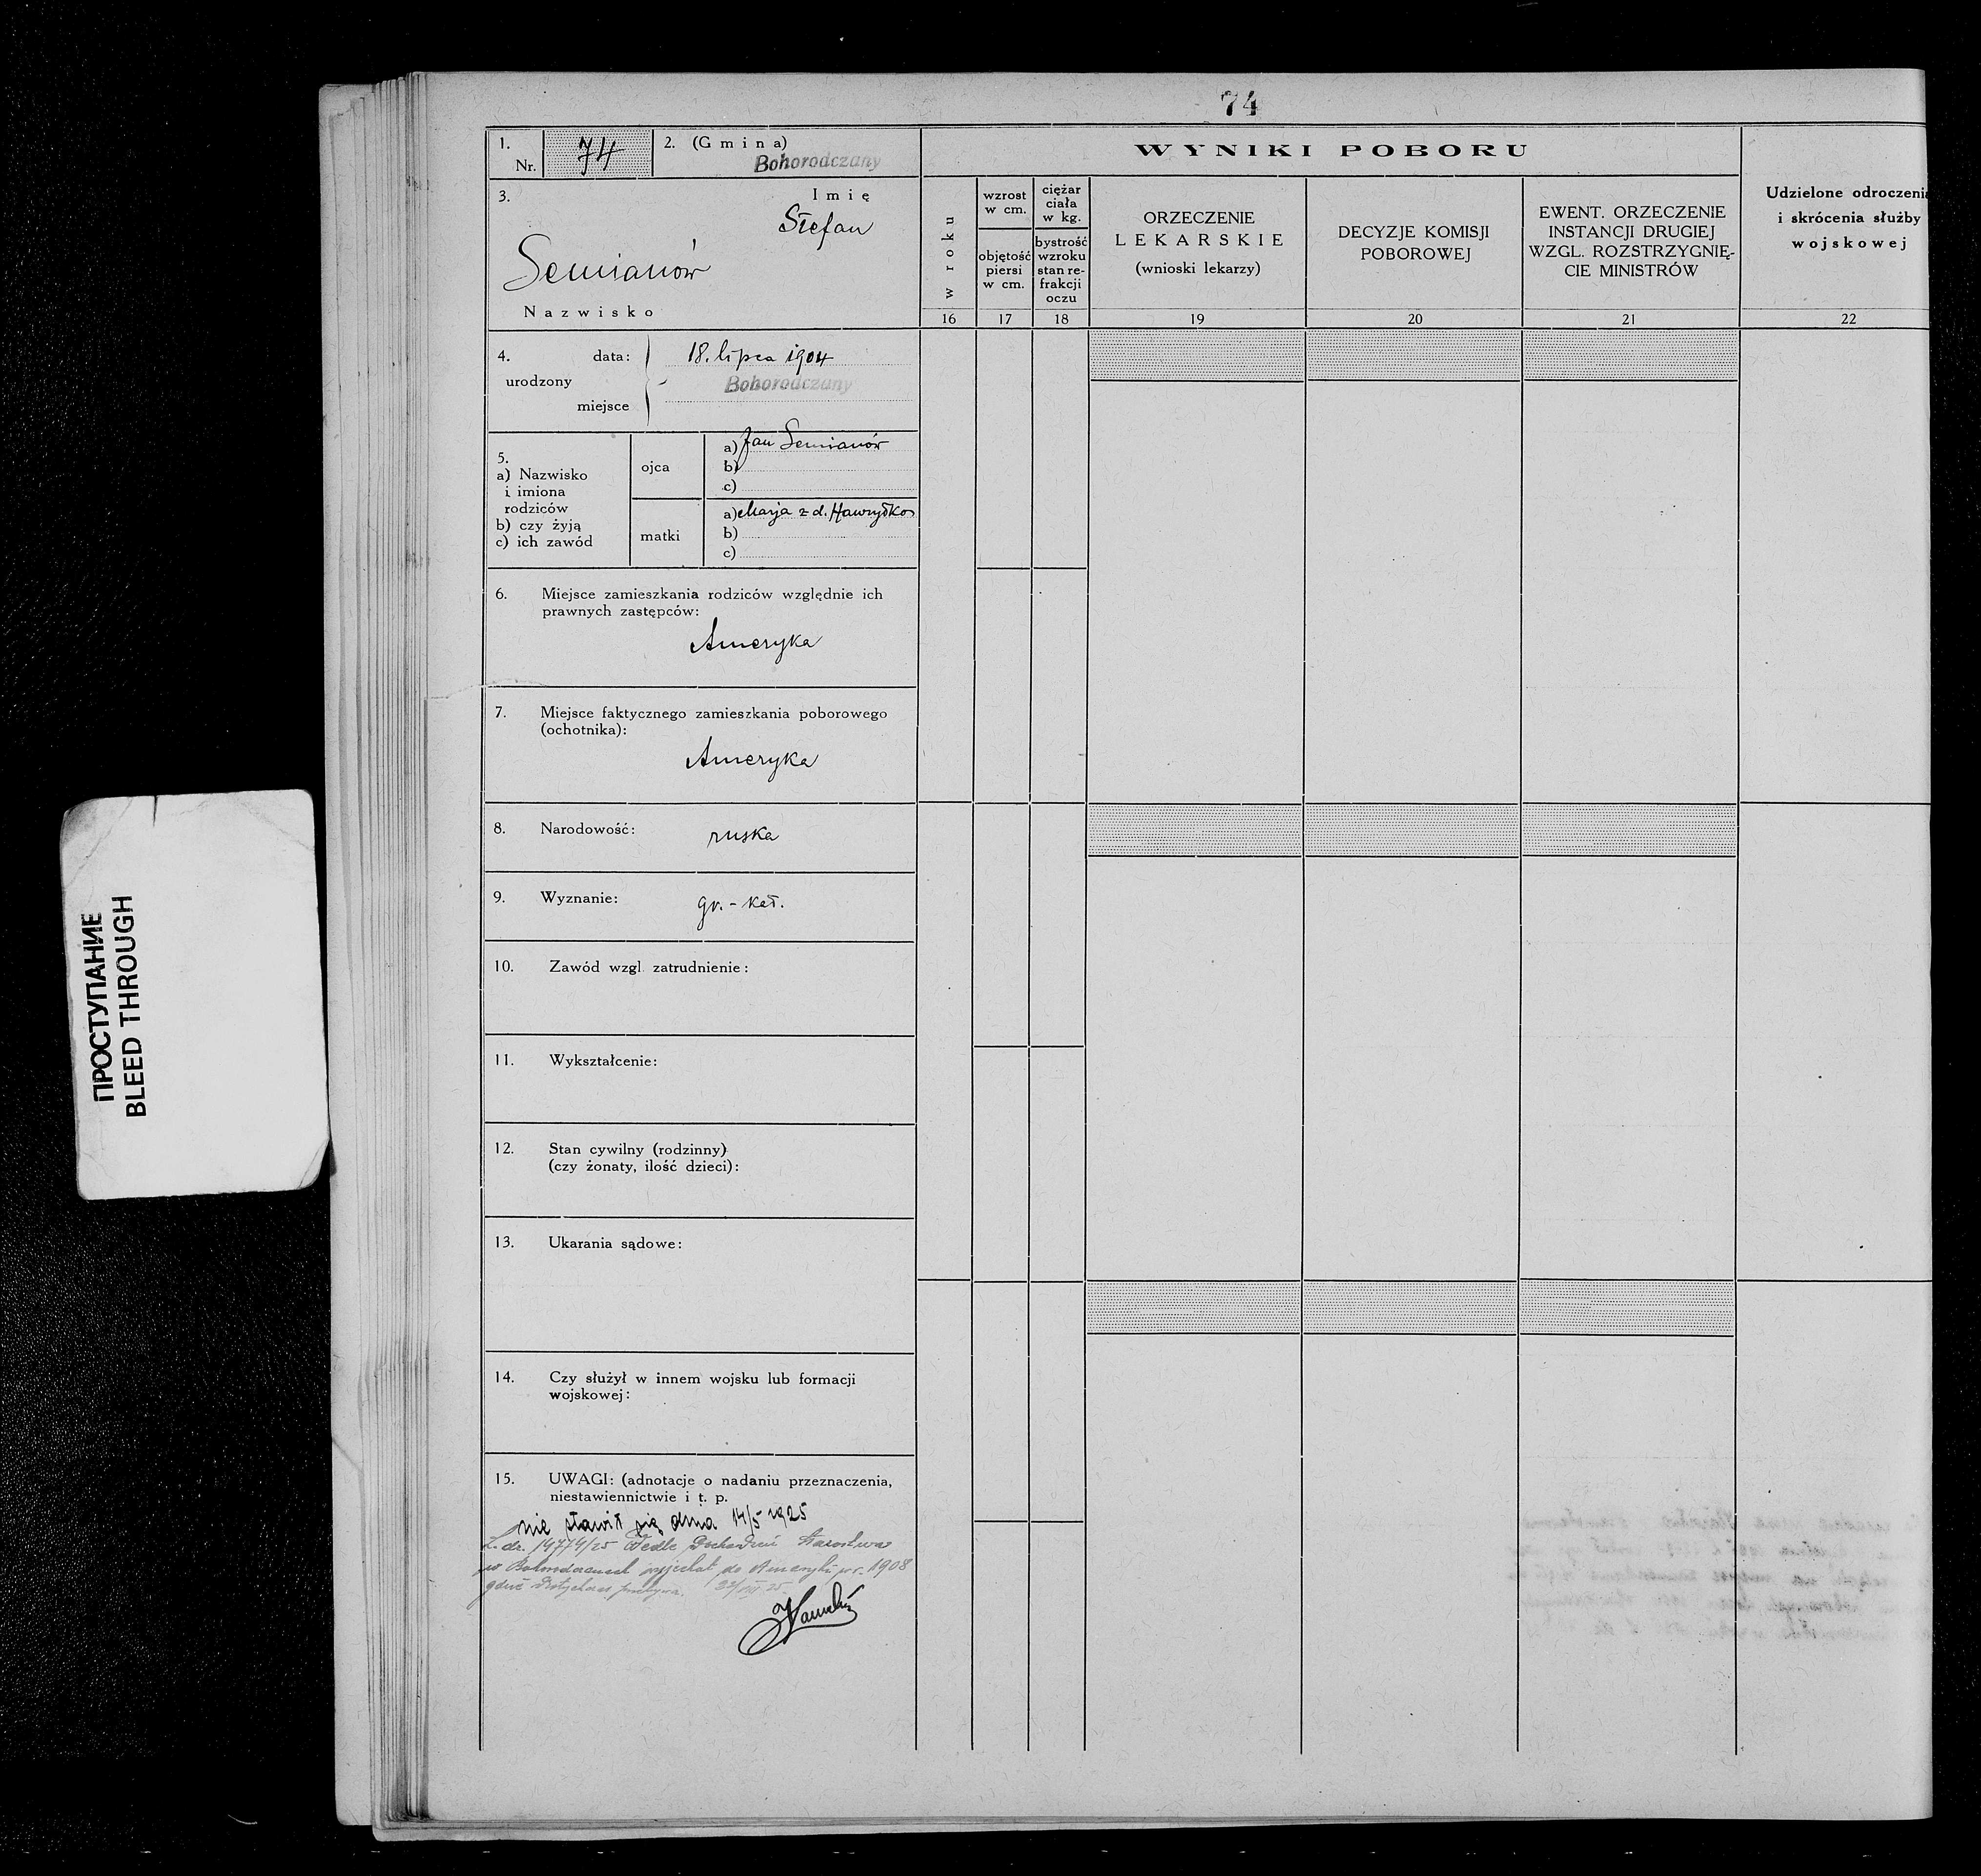 74
1.
Nr. 74
2. (Gmina)
Bohorodczany
3.
Imię
Stefan
Semianów
Nazwisko
4. urodzony
data: 18. lipca 1904
miejsce Bohorodczany
5.
a) Nazwisko
i imiona
rodziców
b) czy żyją
c) ich zawód
ojca
a) Jan Semianów
b)
c)
matki
a) Marja z d. Hawryłko
b)
c)
6. Miejsce zamieszkania rodziców względnie ich
prawnych zastępców:
Ameryka
7. Miejsce faktycznego zamieszkania poborowego
(ochotnika):
Ameryka
8. Narodowość: ruska
9. Wyznanie: gr.-kat.
10. Zawód wzgl. zatrudnienie:
11. Wykształcenie:
12. Stan cywilny (rodzinny)
(czy żonaty, ilość dzieci):
13. Ukarania sądowe:
14. Czy służył w innem wojsku lub formacji
wojskowej:
15. UWAGI: (adnotacje o nadaniu przeznaczenia,
niestawiennictwie i t. p.
nie stawił się dnia 14/5 1925
L. dz. 19779/25 Wedle Dochodzeń Starostwa
w Bohorodczanach wyjechał do Ameryki w r. 1908
gdzie dotychczas przebywa.
WYNIKI POBORU
w roku
16
wzrost
w cm.
objętość
piersi
w cm.
17
ciężar
ciała
w kg.
bystrość
wzroku
stan re-
frakcji
oczu
18
ORZECZENIE
LEKARSKIE
(wnioski lekarzy)
19
DECYZJE KOMISJI
POBOROWEJ
20
EWENT. ORZECZENIE
INSTANCJI DRUGIEJ
WZGL. ROZSTRZYGNIĘ-
CIE MINISTRÓW
21
Udzielone odroczenia
i skrócenia służby
wojskowej
22
ПРОСТУПАНИЕ
BLEED THROUGH